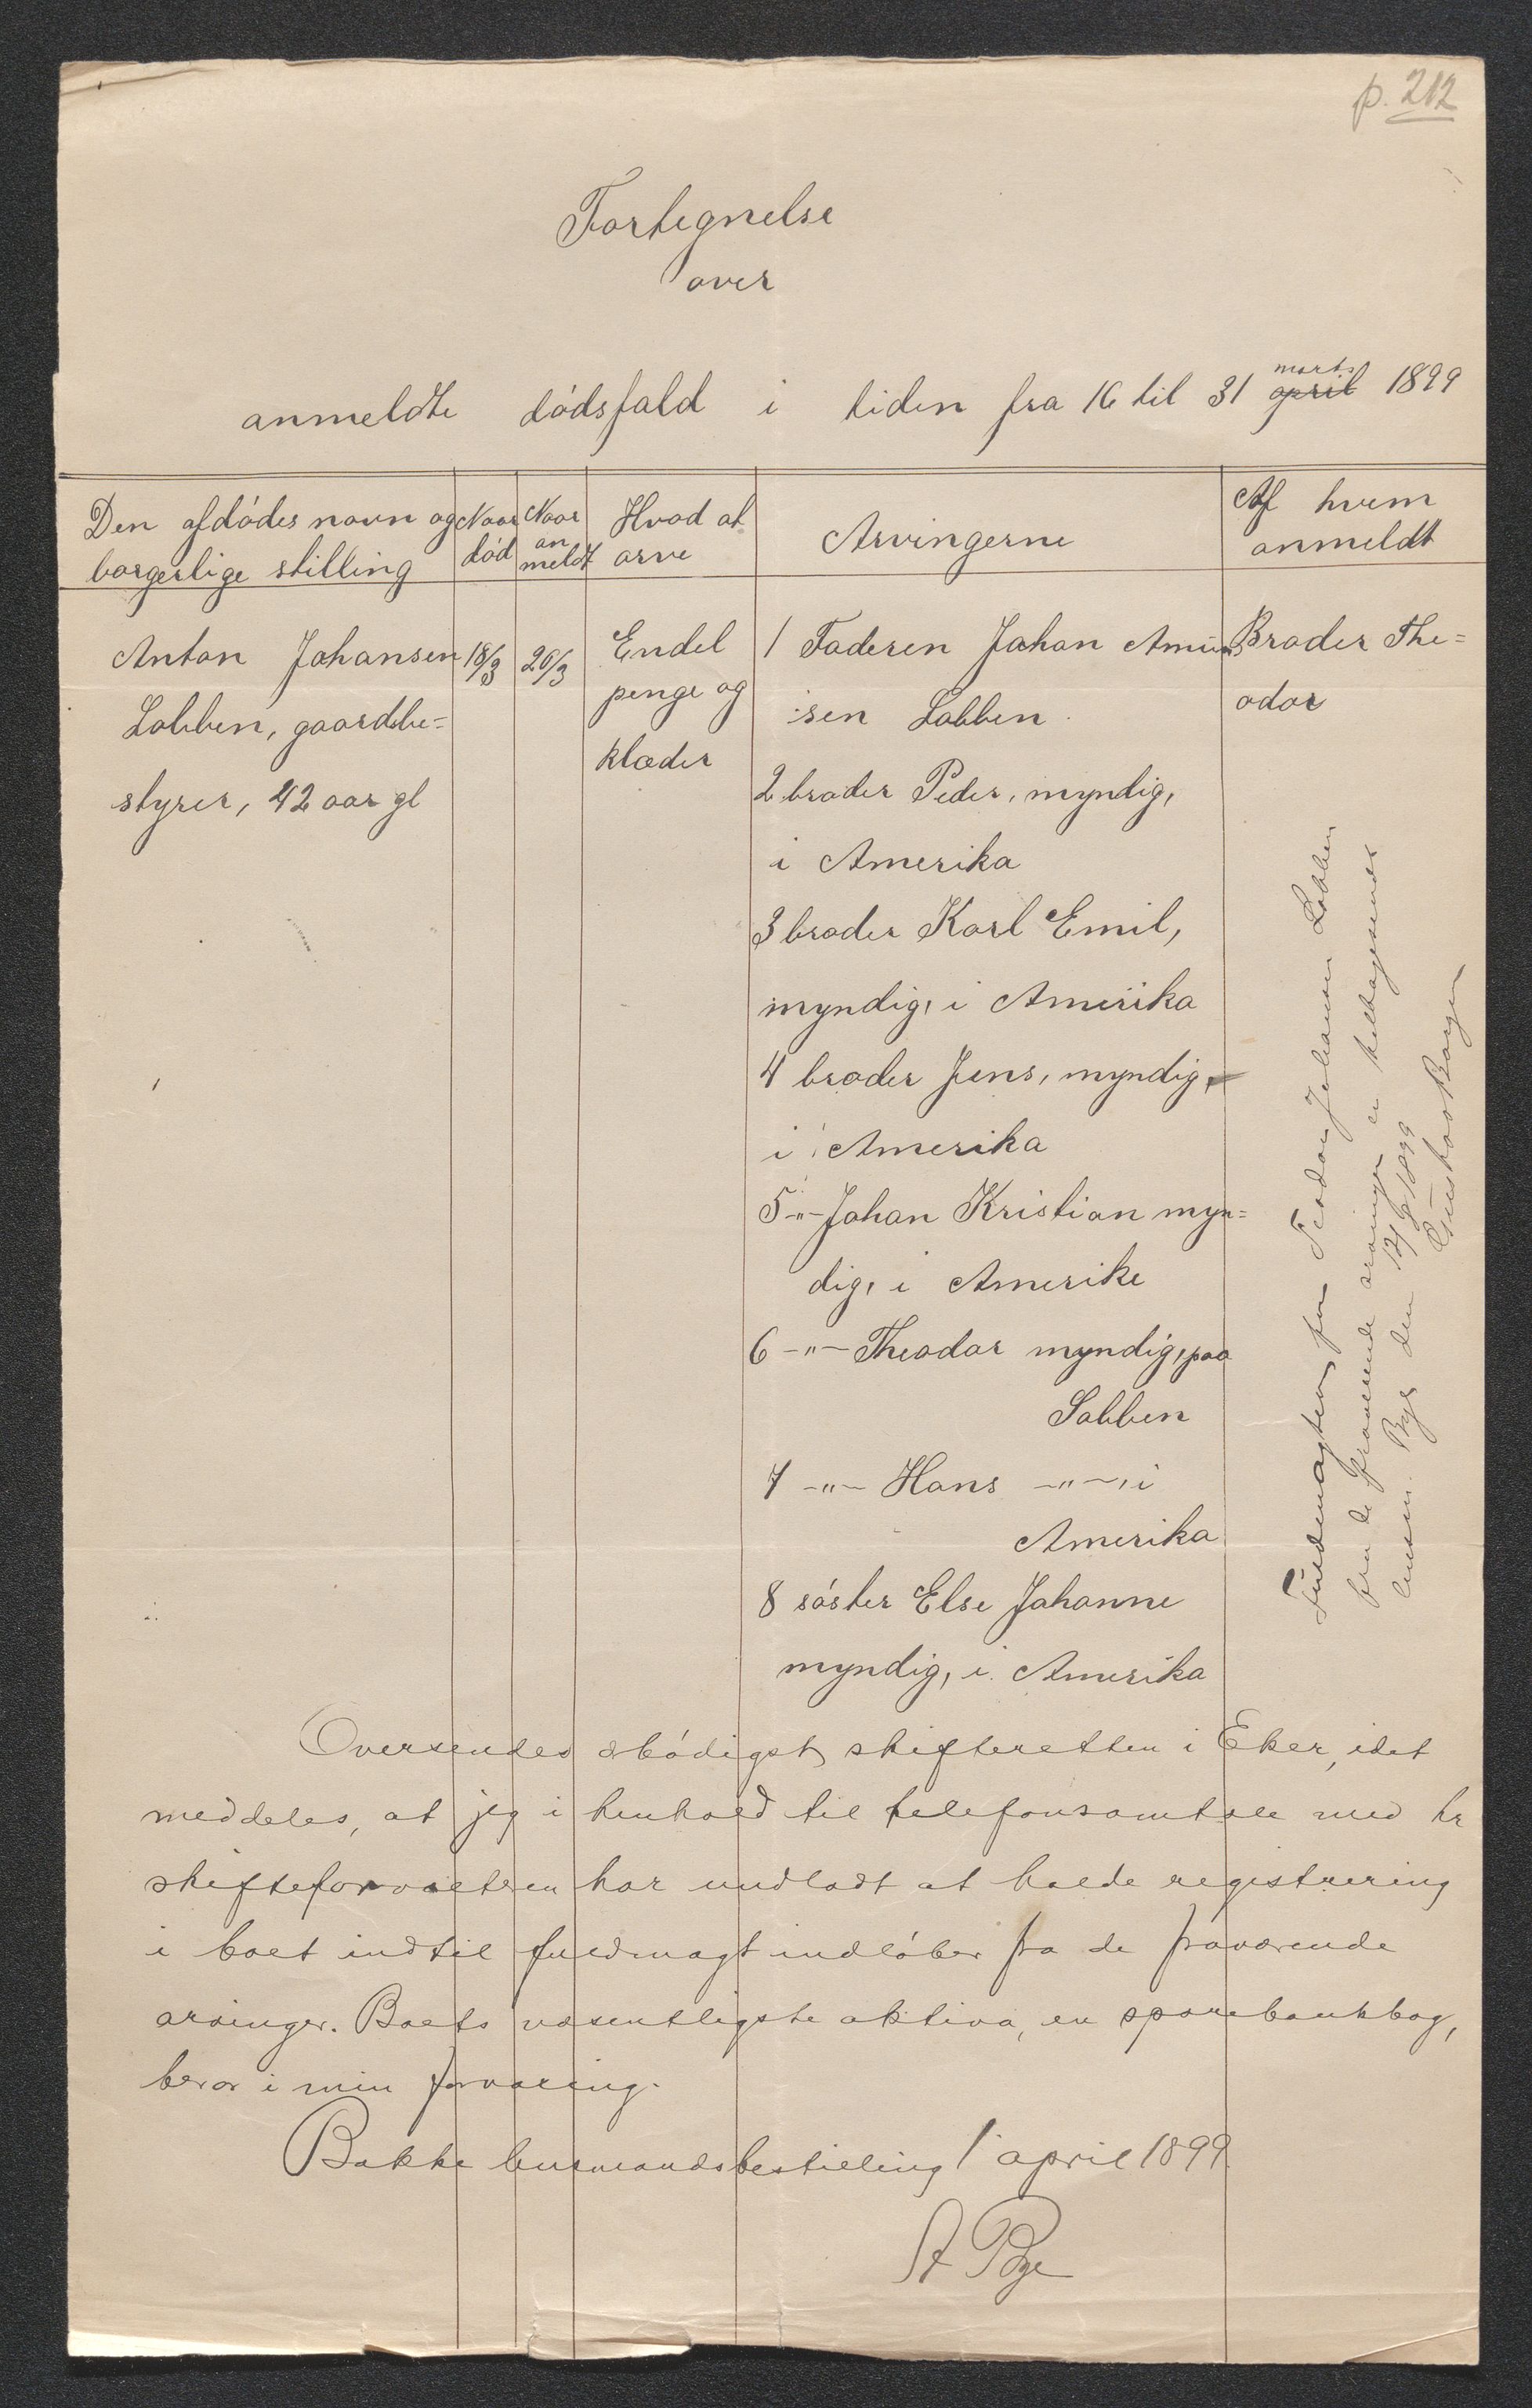 p. 212
Fortegnelse
over
anmeldte dødsfald i tiden fra 16 til 31 april marts 1899
Den afdødes navn og
borgerlige stilling
Naar
død
Naar
an
meldt
Hvad at
arve
Arvingerne
Af hvem
anmeldt
Anton Johansen
Lobben, gaardsbe=
styrer, 42 aar gl
18/3
20/3
Endel
penge og
klæder
1 Faderen Johan Amun
sen Lobben
2 broder Peder, myndig,
i Amerika
3 broder Karl Emil,
myndig, i Amerika
4 broder Jens, myndig,
i Amerika
5 -"- Johan Kristian myn=
dig, i Amerike
6 -"- Theodor myndig, paa
Lobben
7 -"- Hans -"-, i
Amerika
8 søster Else Johanne
myndig, i Amerika
Broder The=
odor
Fuldmagten for Teodor Johansen Lobben
fra de fraværende arvinger er tilbagesendt
lensm. Bye den 12/9 1899
Gustav Borgen
Oversendes ærbødigst skifteretten i Eker, idet
meddeles, at jeg i henhold til telefonsamtale med hr
skifteforvalteren har undladt at holde registrering
i boet indtil fuldmagt indløber fra de fraværende
arvinger. Boets væsentligste aktiva, en sparebankbog,
beror i min forvaring.
Bakke lensmandsbestilling 1 april 1899.
A Bye